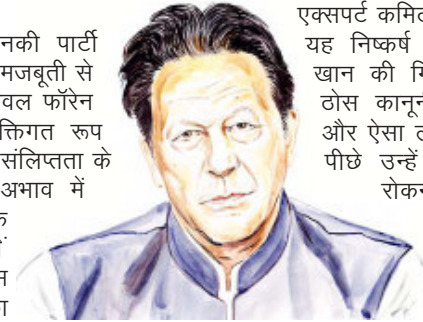 नकी पार्टी
मजबूती से
वल फॉरेन
क्तिगत रूप
संलिप्तता के
अभाव में
एक्सपर्ट कमिट
यह निष्कर्ष
खान की गि
ठोस कानूनी
और ऐसा ल
पीछे उन्हें
रोकन